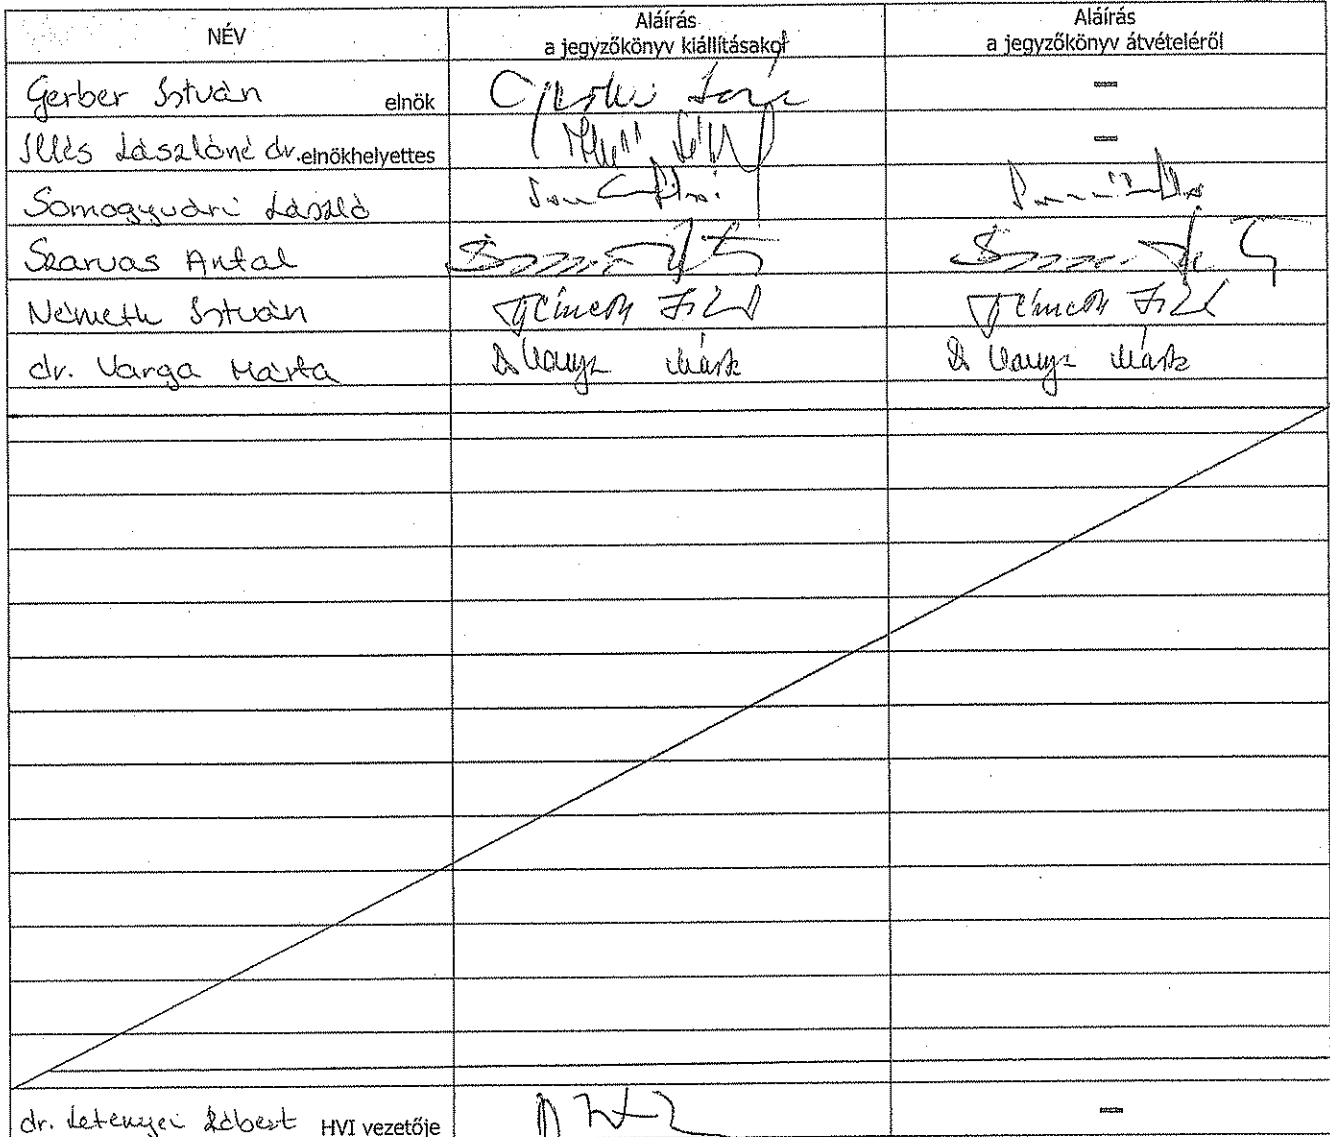 NÉV
Aláírás
a jegyzőkönyv kiállításakor
Aláírás
a jegyzőkönyv átvételéről
Gerber István elnök
—
Illés Lászlóné dr. elnökhelyettes
—
Somogyvári László
Szarvas Antal
Németh István
Németh
Németh
dr. Varga Márta
Dr Varga Márta
Dr Varga Márta
dr. Letenyei Róbert HVI vezetője
—